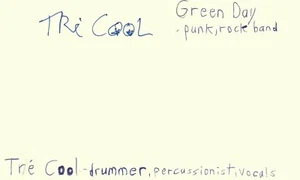 TRé COOL
Green Day
- punk, rock band
Tré Cool - drummer, percussionist, vocals